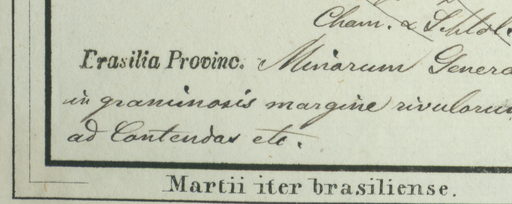 Cham. & Schtdl.
Brasilia Provinc. Minarum Genera
in graminosis margine rivulorum
ad Contendas etc.
Martii iter brasiliense.